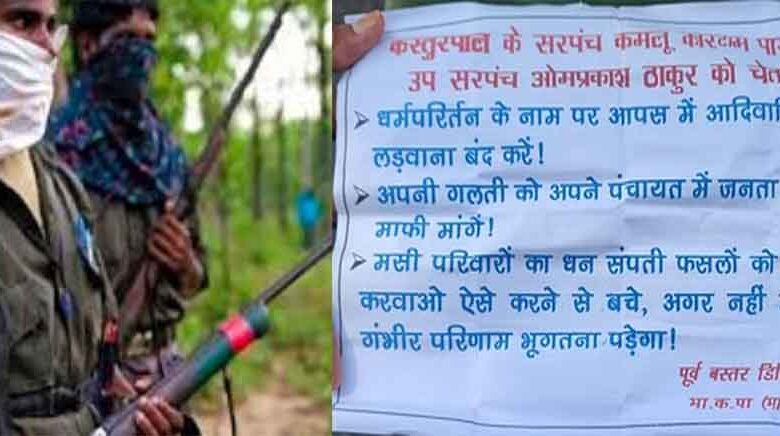 कस्तुरपाल के सरपंच कमलू कारटाम
उप सरपंच ओमप्रकाश ठाकुर को
धर्मपरिर्तन के नाम पर आपस में
लड़वाना बंद करें!
अपनी गलती को अपने पंचायत में जनता
माफी मांगें!
मसी परिवारों का धन संपती फसलों को
करवाओ ऐसे करने से बचे, अगर नहीं
गंभीर परिणाम भूगतना पड़ेगा!
पूर्व बस्तर
भा.क.पा